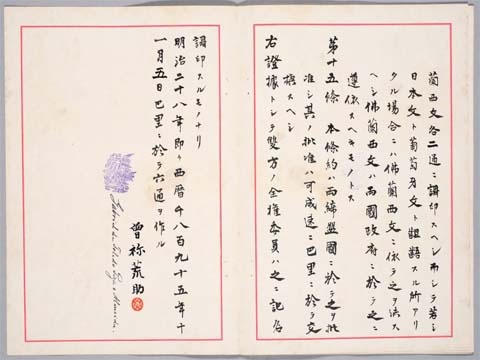 蘭西文各二通ニ調印スヘシ而シテ若シ
日本文ト葡萄牙文ト齟齬スル所アリ
タル場合ニハ佛蘭西文ニ依テ之ヲ決ス
ヘシ佛蘭西文ハ両國政府ニ於テ之ニ
遵依スヘキモノトス
第十五條 本條約ハ両締盟國ニ於テ之ヲ批
准シ其ノ批准ハ可成速ニ巴里ニ於テ交
換スヘシ
右證據トシテ雙方ノ全權委員ハ之ニ記名
調印スルモノナリ
明治二十八年即チ西暦千八百九十五年十
一月五日巴里ニ於テ六通ヲ作ル
曾祢荒助